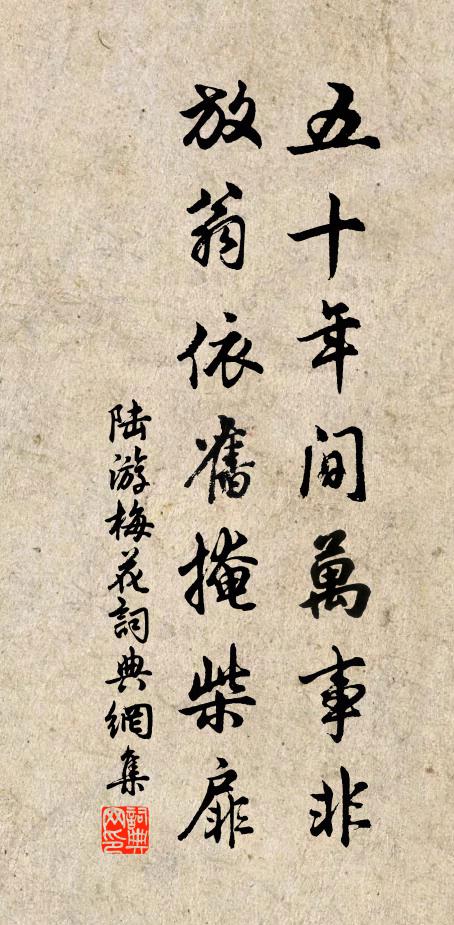 五十年間萬事非
放翁依舊掩柴扉
陸游梅花詞典網集
詞典网印